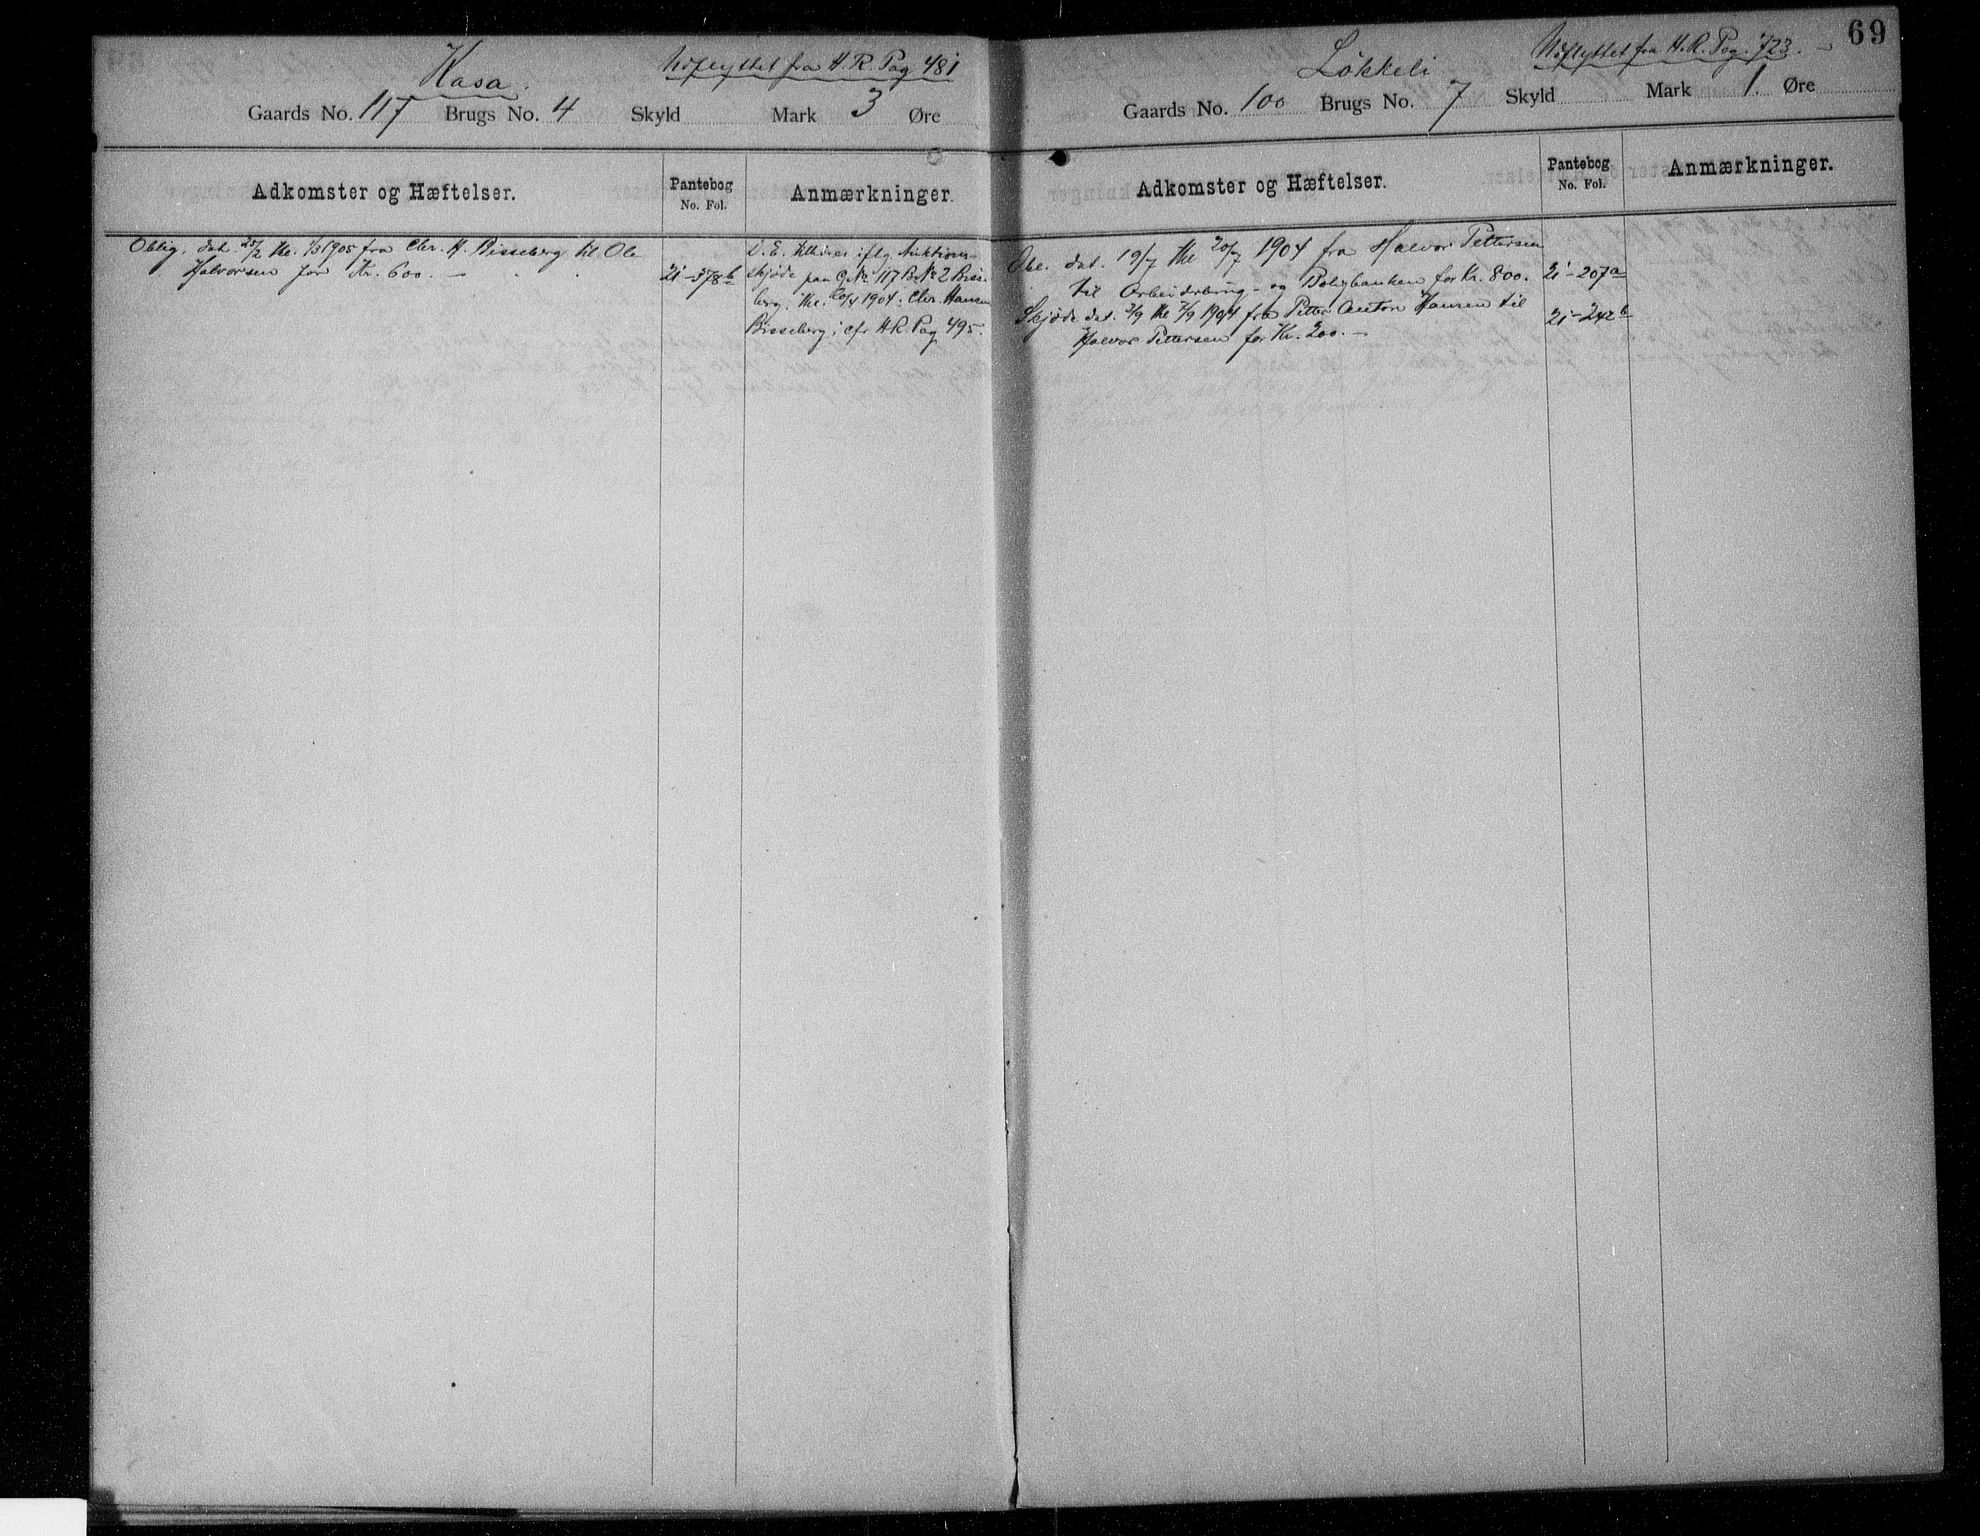 Kasa.
Udflyttet fra H. R. Pag 481
Gaards No. 117 Brugs No. 4 Skyld Mark 3 Øre
Adkomster og Hæftelser.
Pantebog
No. Fol.
Anmærkninger.
Oblig. dat. 25/2 thl. 1/3 1905 fra Chr. H. Bisseberg til Ole
Halvorsen for Kr. 600. —
21-378b
D. E. tilhører iflg. Auktions-
skjøde paa G.No 117 Br.No 2 Bisse-
berg, thl. 1904. Chr. Hansen
Bisseberg, cfr H.R. Pag 495.
69
Løkkeli
Udflyttet fra H. R. Pag. 723. —
Gaards No. 100 Brugs No. 7 Skyld Mark 1. Øre
Adkomster og Hæftelser.
Pantebog
No. Fol.
Anmærkninger.
Obl. dat. 19/7 thl 20/7 1904 fra Halvor Pettersen
til Arbeiderbrug- og Boligbanken for Kr. 800.
21-207a
Skjøde dat. 2/9 thl 7/9 1904 fra Petter Anton Hansen til
Halvor Pettersen for Kr. 200. —
21-242b